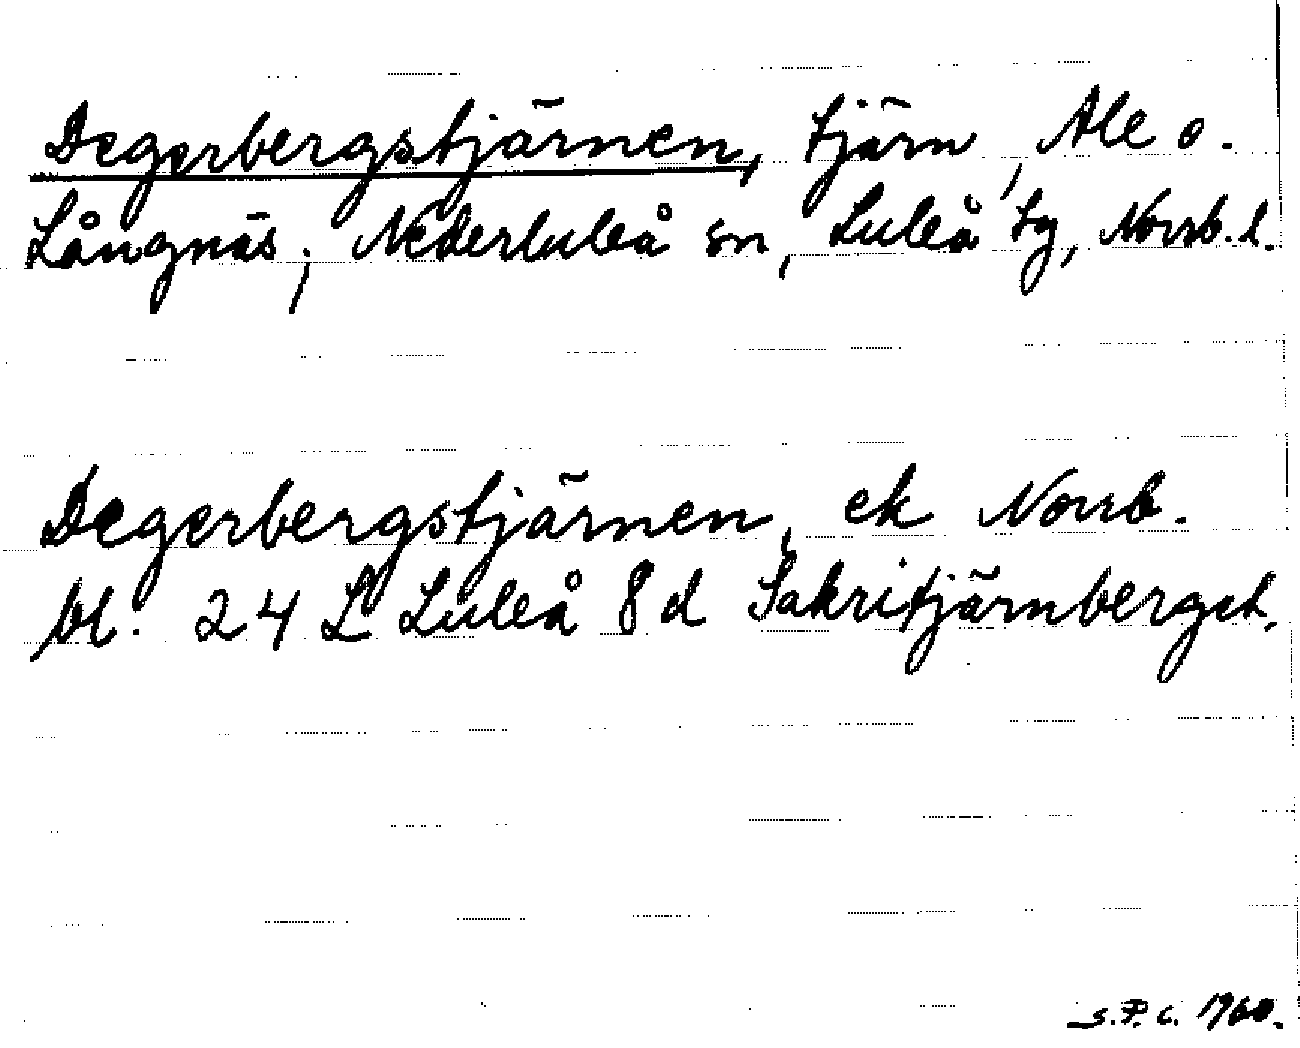 Degerbergstjärnen, tjärn, Ale o.
Långnäs, Nederluleå sn, Luleå tg, Norrb. l.
Degerbergstjärnen, ek Norrb.
bl. 24 L Luleå 8 d Sakritjärnberget.
S.P.C. 1960.